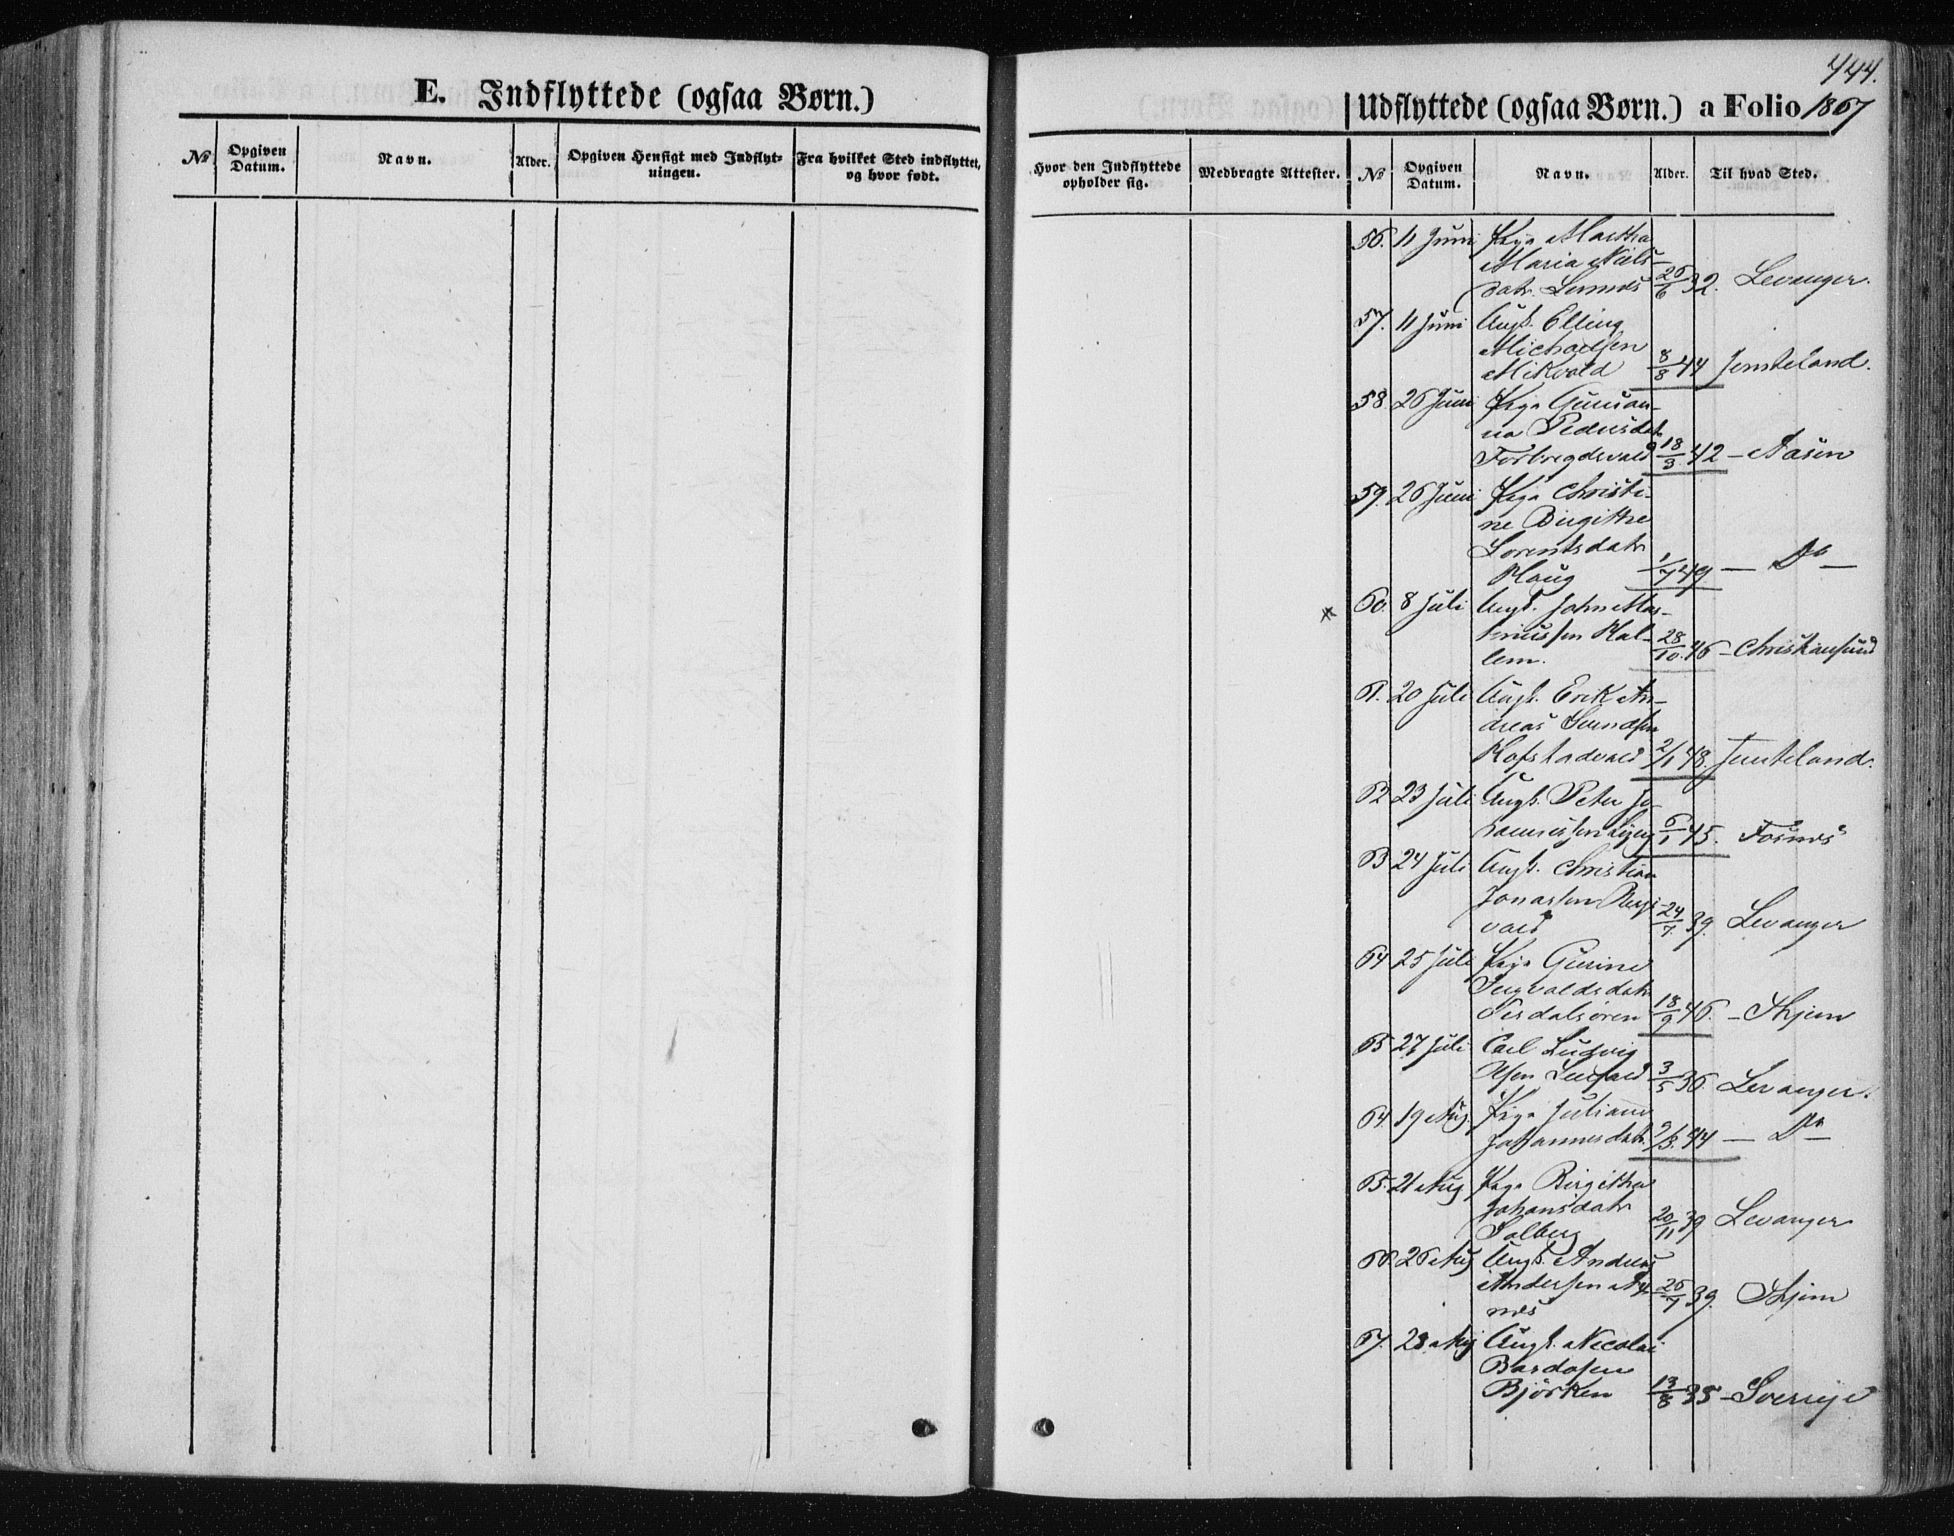 E. Indflyttede (ogsaa Børn.)
№
Opgiven Datum.
Navn.
Alder.
Opgiven Hensigt med Indflyt-
ningen.
Fra hvilket Sted indflyttet,
og hvor født.
444.
Udflyttede (ogsaa Børn.) a Folio 1867
Hvor den Indflyttede
opholder sig.
Medbragte Attester.
№
Opgiven Datum.
Navn.
Alder.
Til hvad Sted.
56. 11 Juni Pige Martha
Maria Niels-
datr. 26/6 32. Levanger.
57. 11 Juni Ungk. Elling
Michaelsen
Mikvold 8/8 44 Jemteland.
58 26 Juni Pige Gurian-
na Pedersdat
Forbregdsvald 18/3 42 - Aasen
59. 26 Juni Pige Christi-
ne Birgitthe
Lorentsdatr
Haug 1/7 49 - Do -
60. 8 Juli Ungk. John Mar-
Hal- 28/10 46 - Christiansund
lem.
61. 20 Juli Ungk. Erik An-
dreas Svendsen
Hofstadvald 2/1 48. Jemteland.
62 23 Juli Ungk. Peter Jo-
6/1 45. Fosnes
63 24 Juli Ungk. Christian
Jonassen
vald 24/7 39. Levanger
64 25 Juli Pige Gurine
Ingvaldsdatr
Verdalsøren 18/9 46. - Skjern
65 27 Juli Carl Ludvig
3/5 36. Levanger.
64. 19 Aug. Pige Juliane
Johannesdatr. 9/3 44 - Do -
65. 21 Aug Pige Birgitha
Johansdatr
Solberg 20/11 39 Levanger
66. 26 Aug Ungk. Andreas
Andersen By-
nes 26/7 39. Skjern
67. 28 Aug Ungk. Nicolai
Bardosen
Bjørken 13/8 35 - Sverrige